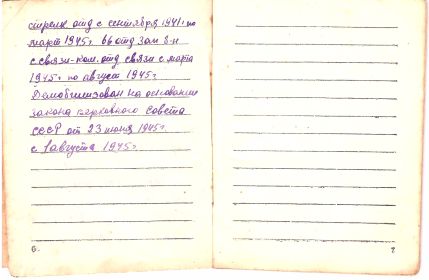 стрелк. отд с сентября 1941г. по
март 1945г. 66 отд зап б-н
с связи-ком. отд. связи с марта
1945г. по август 1945г.
Демобилизован на основании
закона верховного совета
СССР от 23 июня 1945г.
с 1 августа 1945г.
6.
7